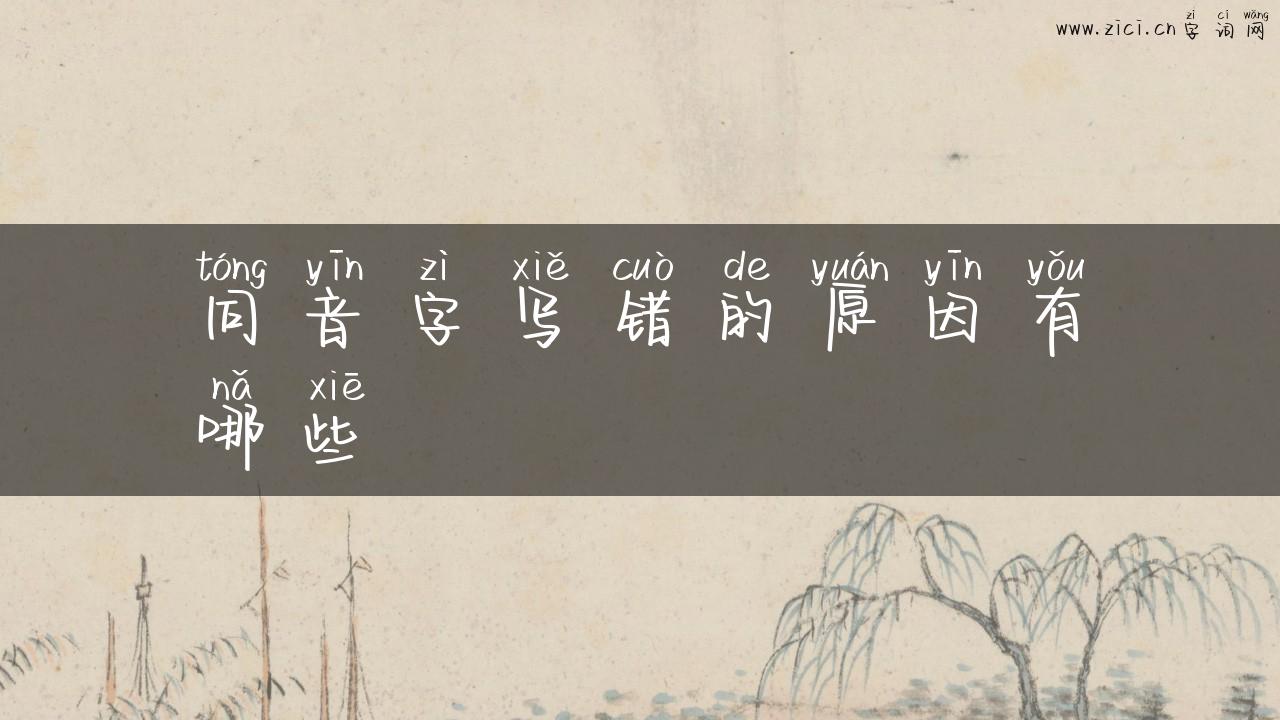 www.zici.cn 字词网
zì cí wǎng
tóng yīn zì xiě cuò de yuán yīn yǒu
同音字写错的原因有
nǎ xiē
哪些